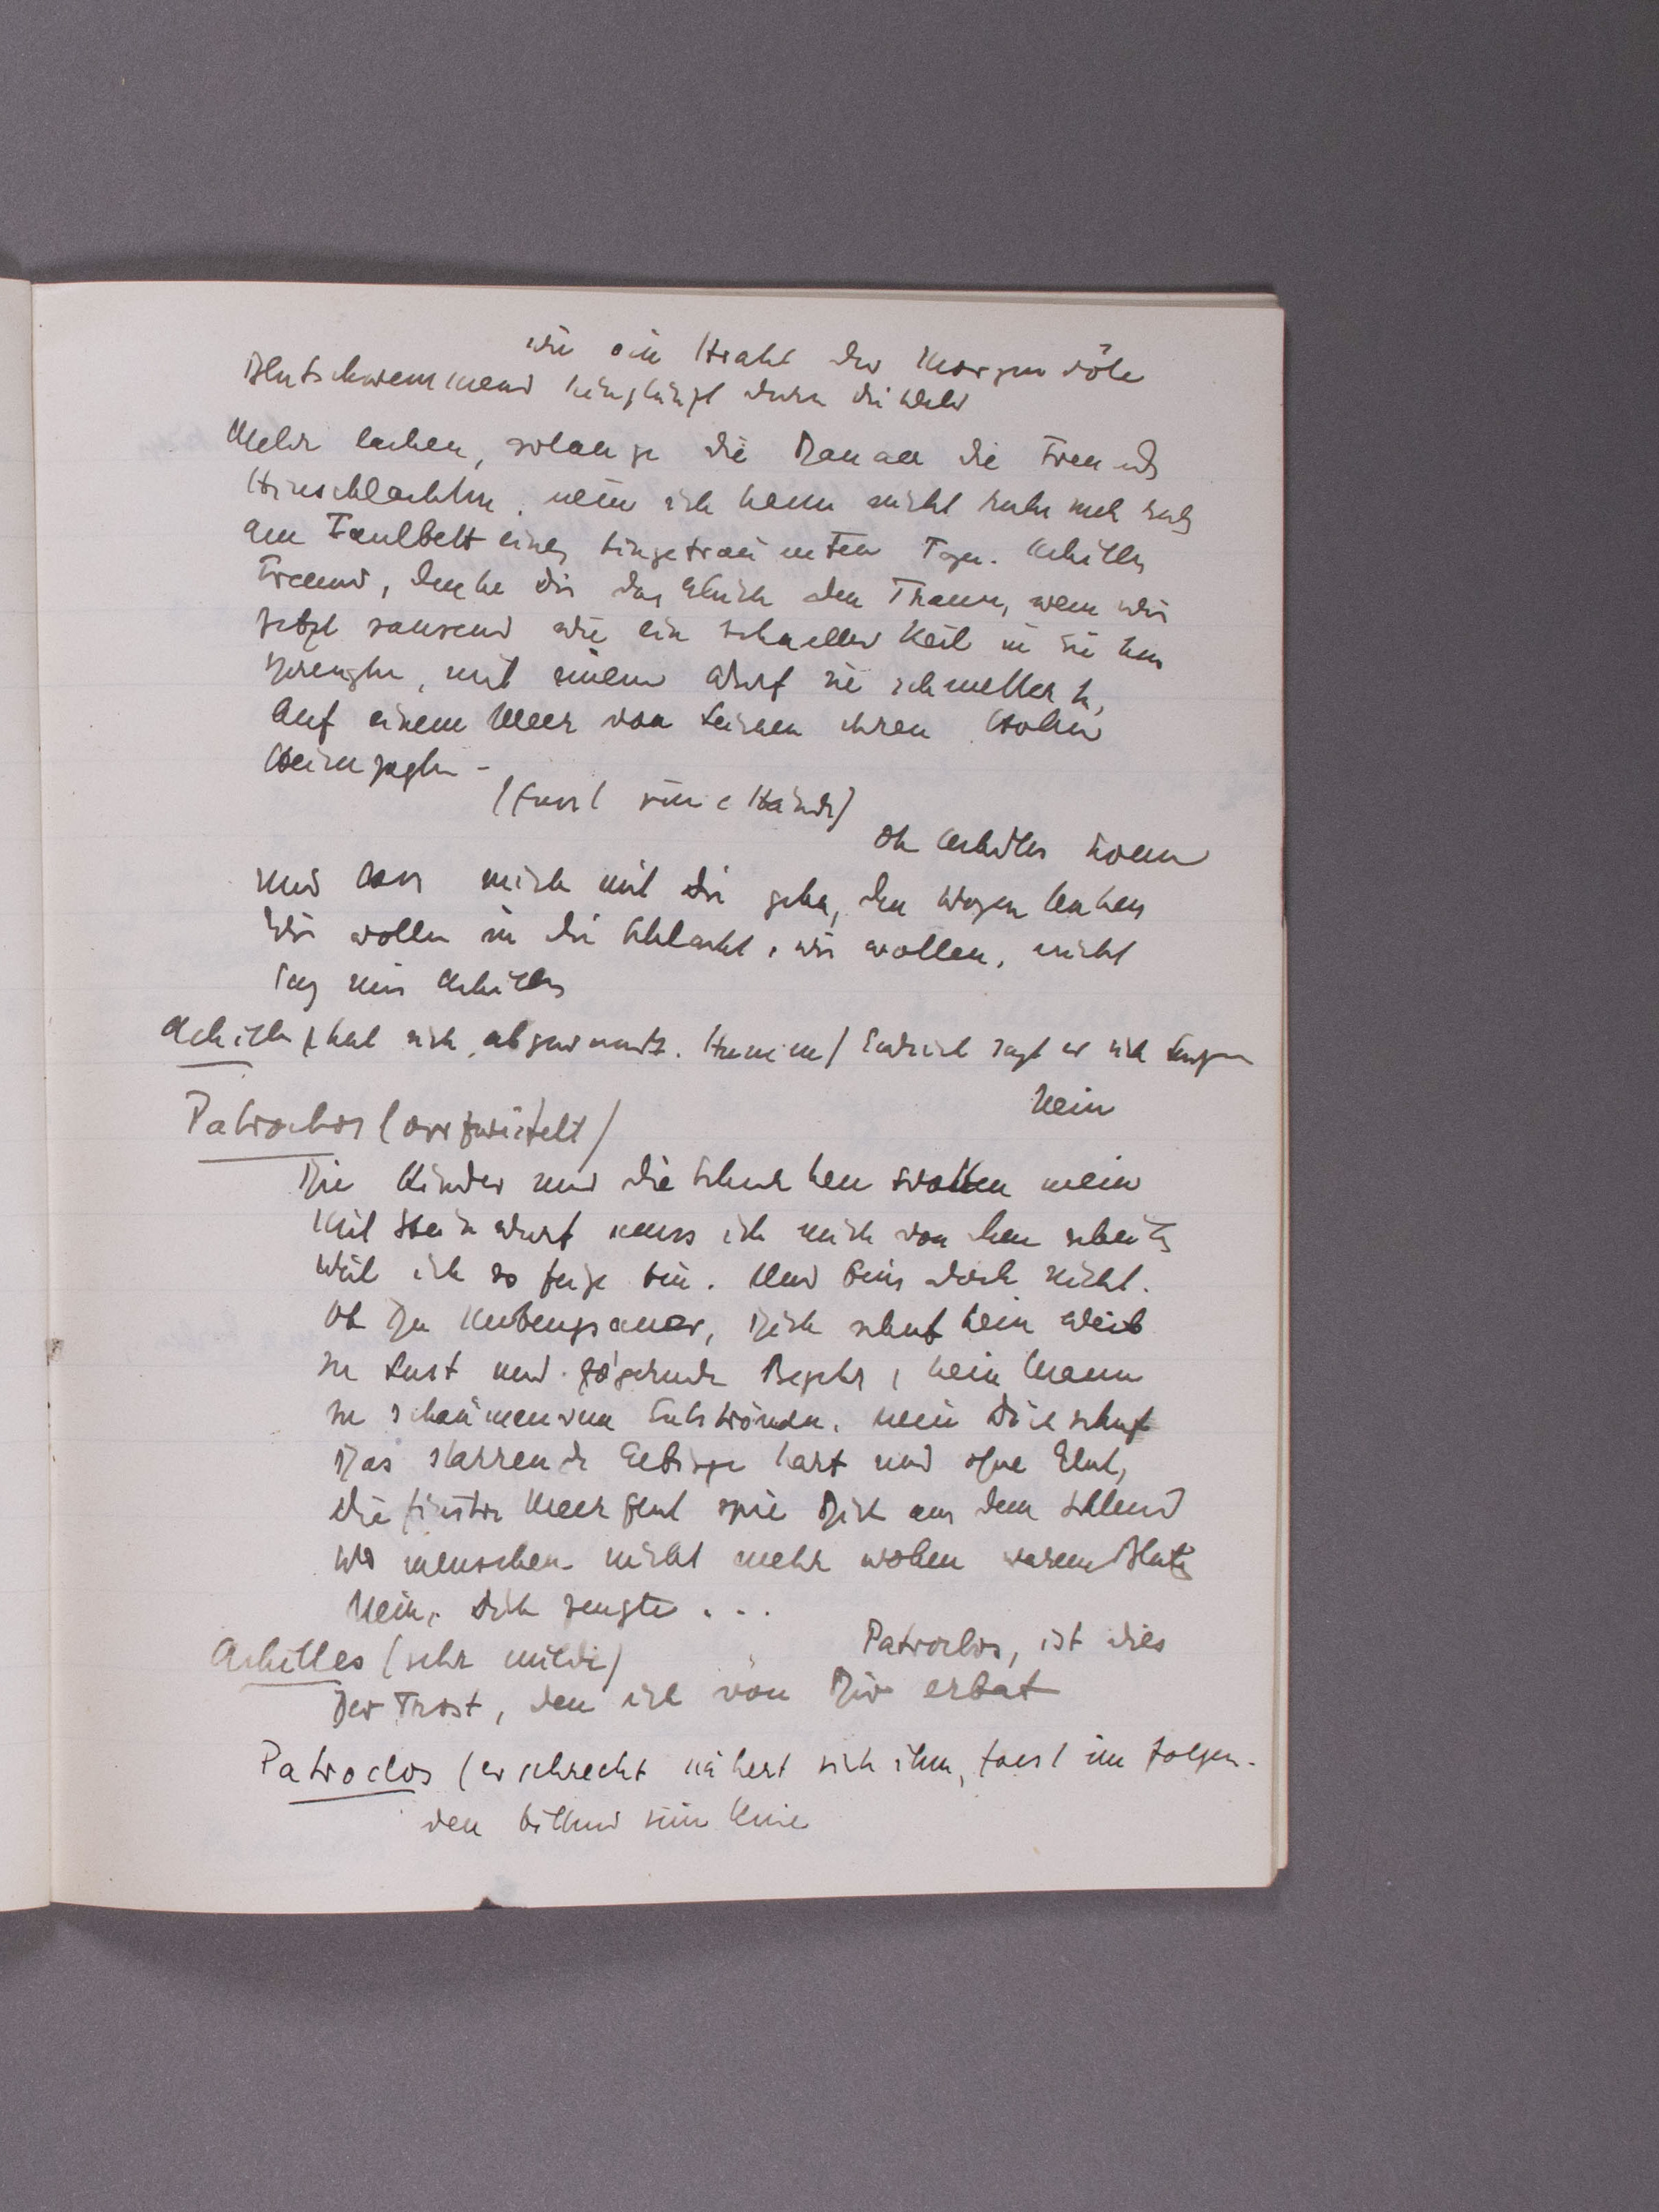 wie ein Strahl der Morgenröte
Blutschwemmend hinglänzt durch die Welt
Mehr lachen, solange die Danaer die Freunde
Hinschlachten. nein ich kann nicht
am Faulbett eines hingeträumten Tages. Achilles
Freund, denke dir das Glück den Traum, wenn wir
jetzt sausend wie ein schneller Keil in sie hin
sprengten, mit einem Wurf sie schmetterten,
Auf einem Meer von Leichen ihren Hohn
Heimjagten -
(fasst seine Hände)
Oh Achilles komm
Und lass mich mit dir gehn, den Wagen lenken
Wir wollen in die Schlacht, wir wollen, nicht
sag mir Achilles
Achilles (hat sich abgewandt. Stumm) Endlich sagt er sich
Nein
Patroclos (verzweifelt)
Die Kinder und die Schurken spotten mein
Mit Steinwurf muss ich mich von ihnen
Weil ich so feige bin. Und bins doch nicht.
Oh Du Unbeugsamer, Dich schuf kein Weib
In Lust und zögernder Begehr, kein Mann
In schäumendem Entströmen. nein Dich schuf
Das starrende Gebirge hart und ohne Glut,
Die finstre Meerflut spie Dich aus dem Schlund
Wo menschen nicht mehr wohnen warmen Bluts
Nein, Dich zeugte ...
Achilles (sehr milde)
Patroclos, ist dies
Der Trost, den ich von Dir erbat
Patroclos (erschreckt nähert sich ihm, fasst im folgen-
den bittend sein Knie